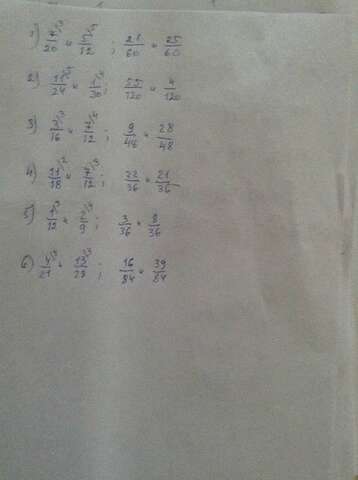 1) 7/20 и 5/12 ; 21/60 и 25/60
2) 11/24 и 1/30 ; 55/120 и 4/120
3) 3/16 и 7/12 ; 9/48 и 28/48
4) 11/18 и 7/12 ; 22/36 и 21/36
5) 1/12 и 2/9 ; 3/36 и 8/36
6) 4/21 и 13/ ; 16/84 и 39/84